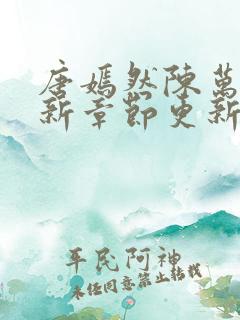 唐嫣然陈萬
新章節更新
平民阿神
未经同意禁止转载